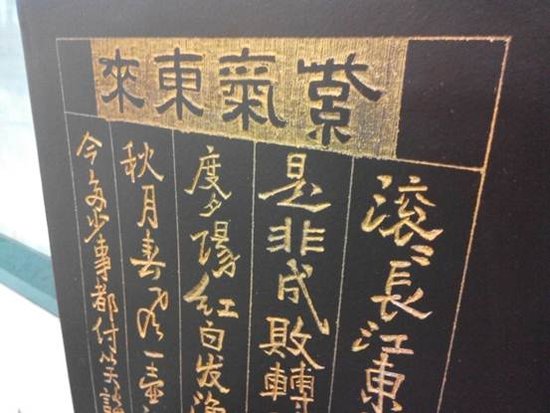 紫氣東來
滚〻長江東
是非成敗轉
度夕陽红白发渔
秋月春风一壶
今多少事都付笑談